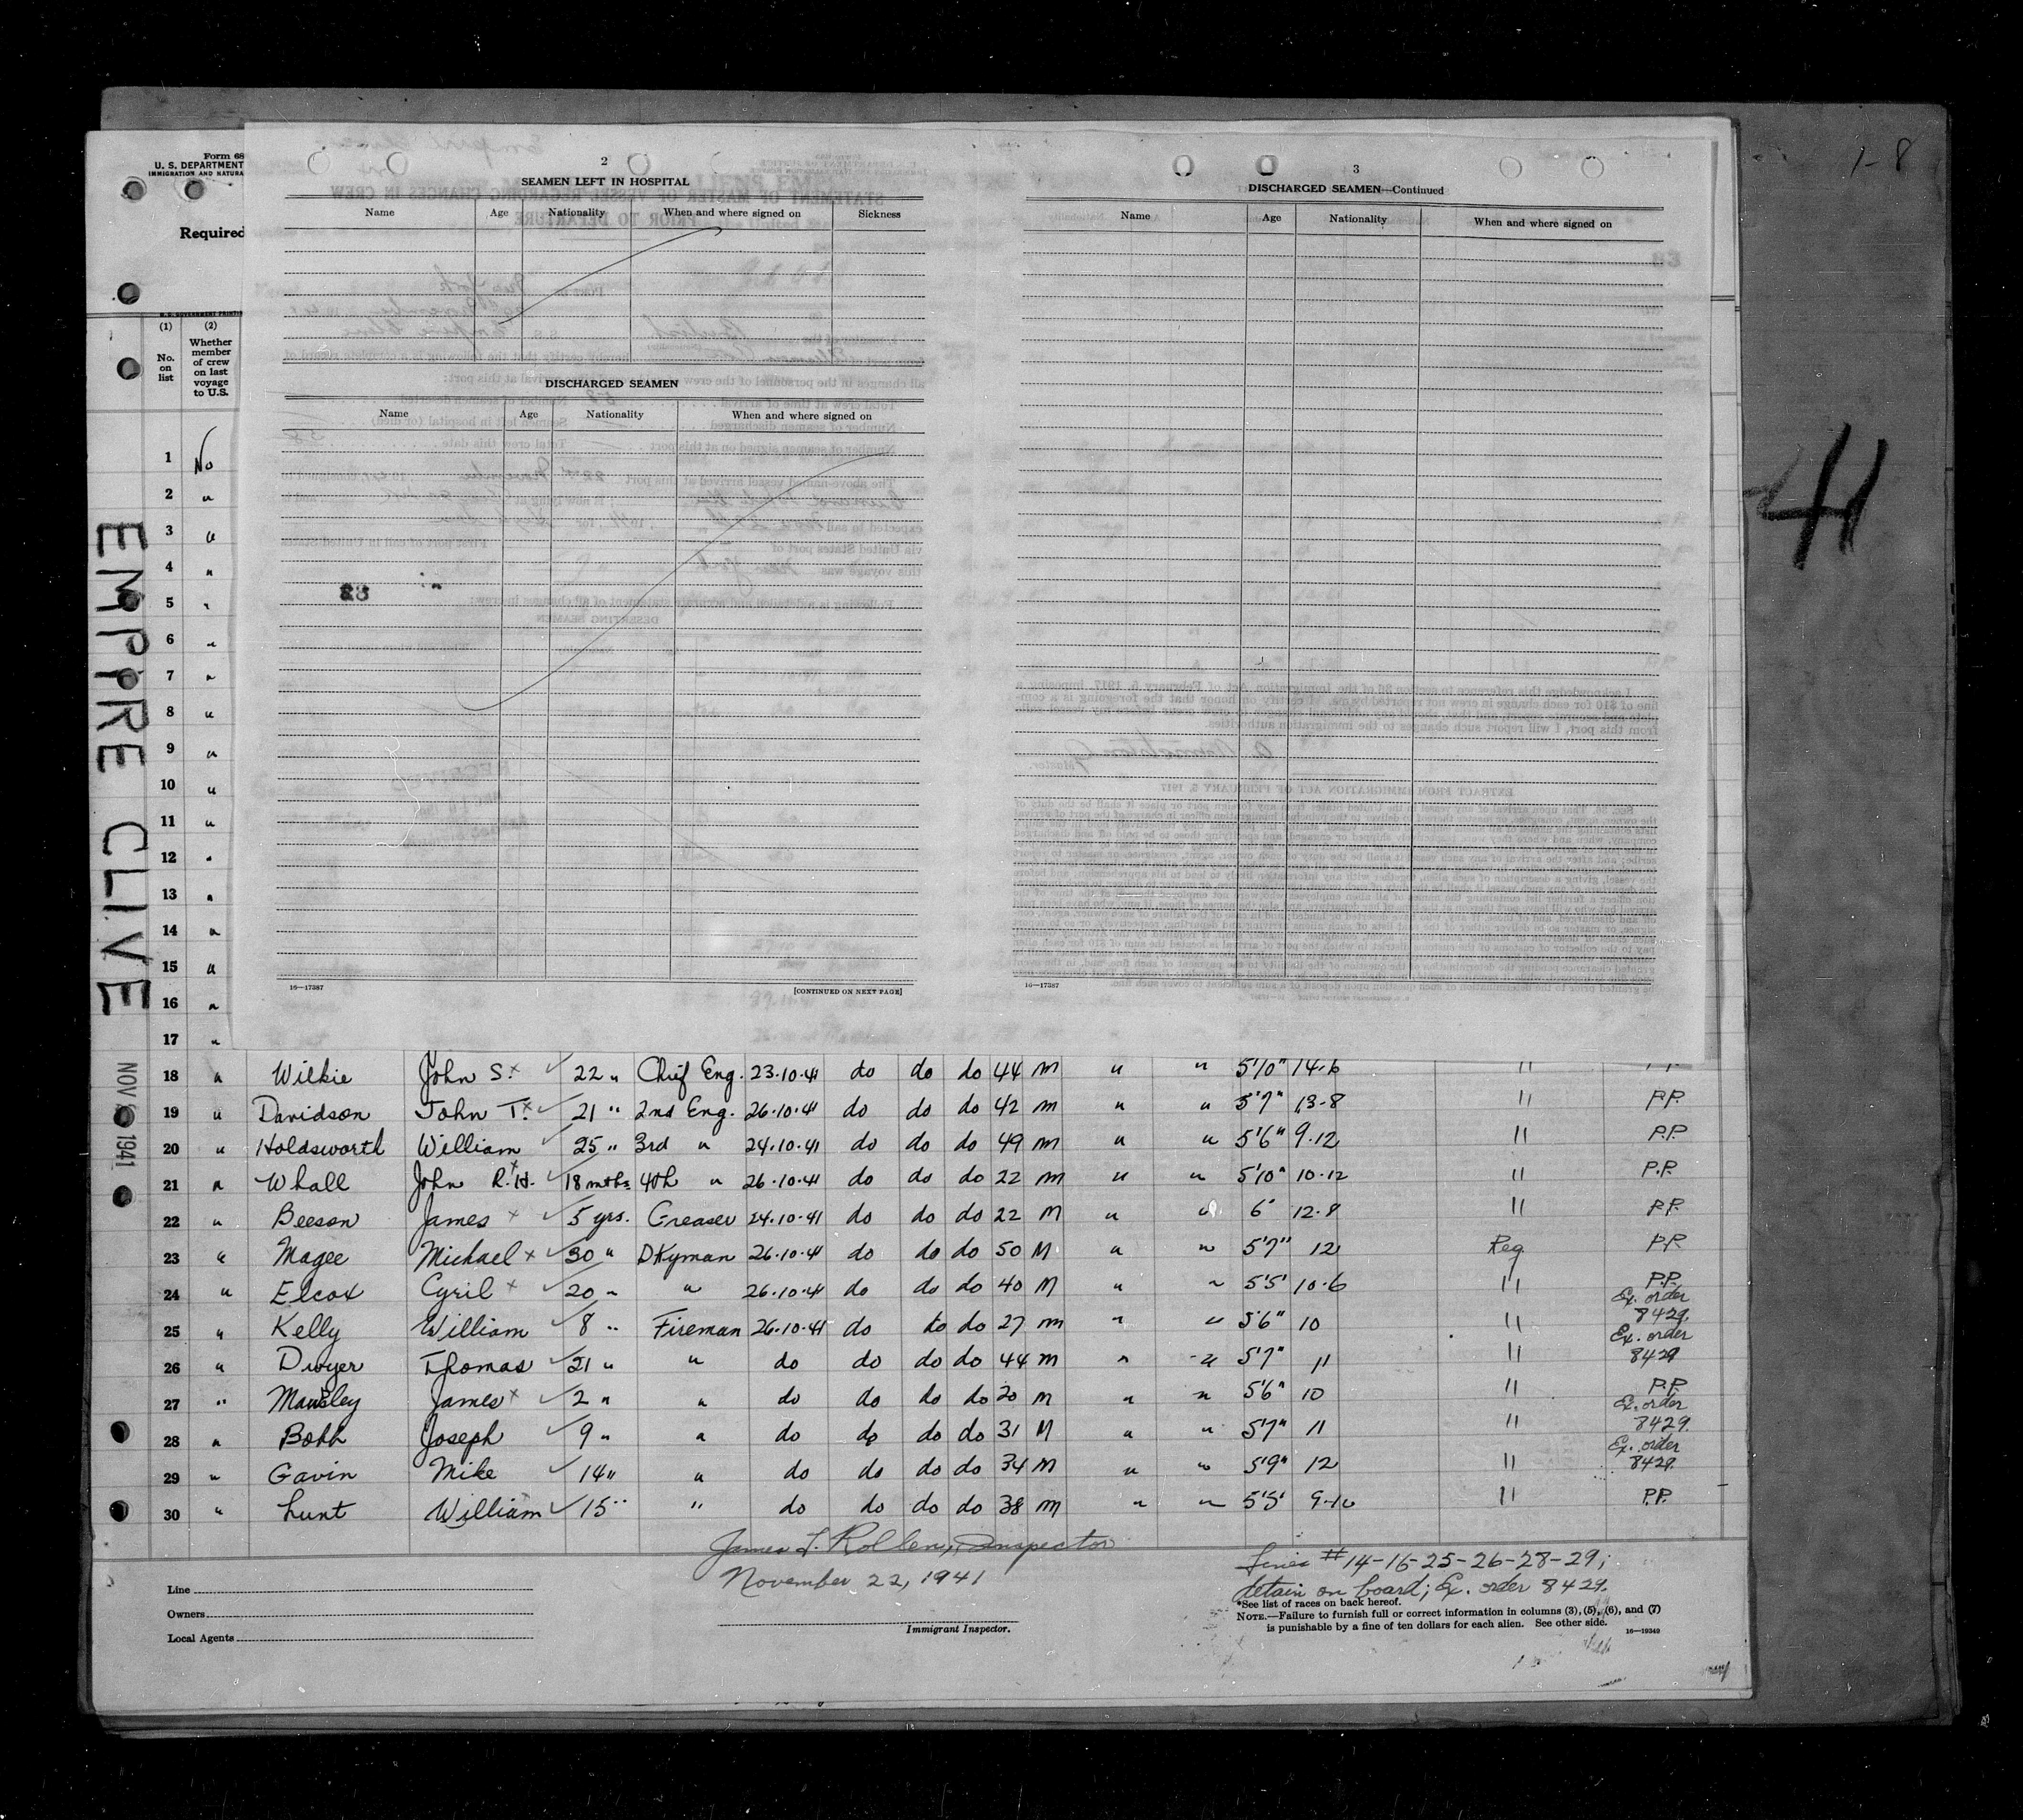 1-8
41
Form 68
U. S. DEPARTMENT
IMMIGRATION AND NATURA
Required
(1) (2)
No. on list
Whether member of crew on last voyage to U.S.
EMPIRE CLIVE
NOV 1941
2
SEAMEN LEFT IN HOSPITAL
Name Age Nationality When and where signed on Sickness
DISCHARGED SEAMEN
Name Age Nationality When and where signed on
16—17387 [CONTINUED ON NEXT PAGE]
3
DISCHARGED SEAMEN—Continued
Name Age Nationality When and where signed on
16—17387
1 No
2 "
3 "
4 "
5 "
6 "
7 "
8 "
9 "
10 "
11 "
12 "
13 "
14 "
15 "
16 "
17 "
18 " Wilkie John S. x ✓ 22 " Chief Eng. 23.10.41 do do do 44 m " " 5'10" 14.6 "
19 " Davidson John T. x ✓ 21 " 2nd Eng. 26.10.41 do do do 42 m " " 5'7" 13-8 " P.P.
20 " Holdsworth William ✓ 25 " 3rd " 24.10.41 do do do 49 m " " 5'6" 9.12 " P.P.
21 " Whall John R.H. x ✓ 18 mths 4th " 26.10.41 do do do 22 m " " 5'10" 10-12 " P.P.
22 " Beeson James x ✓ 5 yrs. Greaser 24.10.41 do do do 22 M " " 6' 12.8 " P.P.
23 " Magee Michael x ✓ 30 " DKyman 26.10.41 do do do 50 M " " 5'7" 12 Reg P.P.
24 " Elcox Cyril x ✓ 20 " " 26.10.41 do do do 40 M " " 5'5' 10.6 " P.P.
25 " Kelly William ✓ 8 " Fireman 26.10.41 do do do 27 m " " 5'6" 10 " Ex. order 8429.
26 " Dwyer Thomas ✓ 21 " " do do do do 44 m " " 5'7" 11 " Ex. order 8429
27 " Mawsley James x ✓ 2 " " do do do do 20 m " " 5'6" 10 " P.P.
28 " Bohh Joseph ✓ 9 " " do do do do 31 M " " 5'7" 11 " Ex. order 8429.
29 " Gavin Mike ✓ 14 " " do do do do 34 m " " 5'9" 12 " Ex. order 8429.
30 " Lunt William ✓ 15 " " do do do do 38 m " " 5'5' 9-10 " P.P.
James L. Rollen, Inspector
November 22, 1941
Immigrant Inspector.
Line
Owners
Local Agents
Lines #14-16-25-26-28-29;
detain on board; Ex. order 8429.
*See list of races on back hereof.
NOTE.—Failure to furnish full or correct information in columns (3), (5), (6), and (7)
is punishable by a fine of ten dollars for each alien. See other side.
16—19340